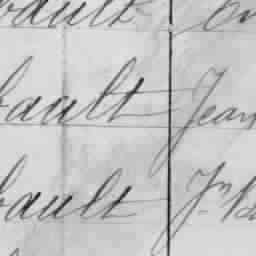 bault
bault Jean
bault Jn B